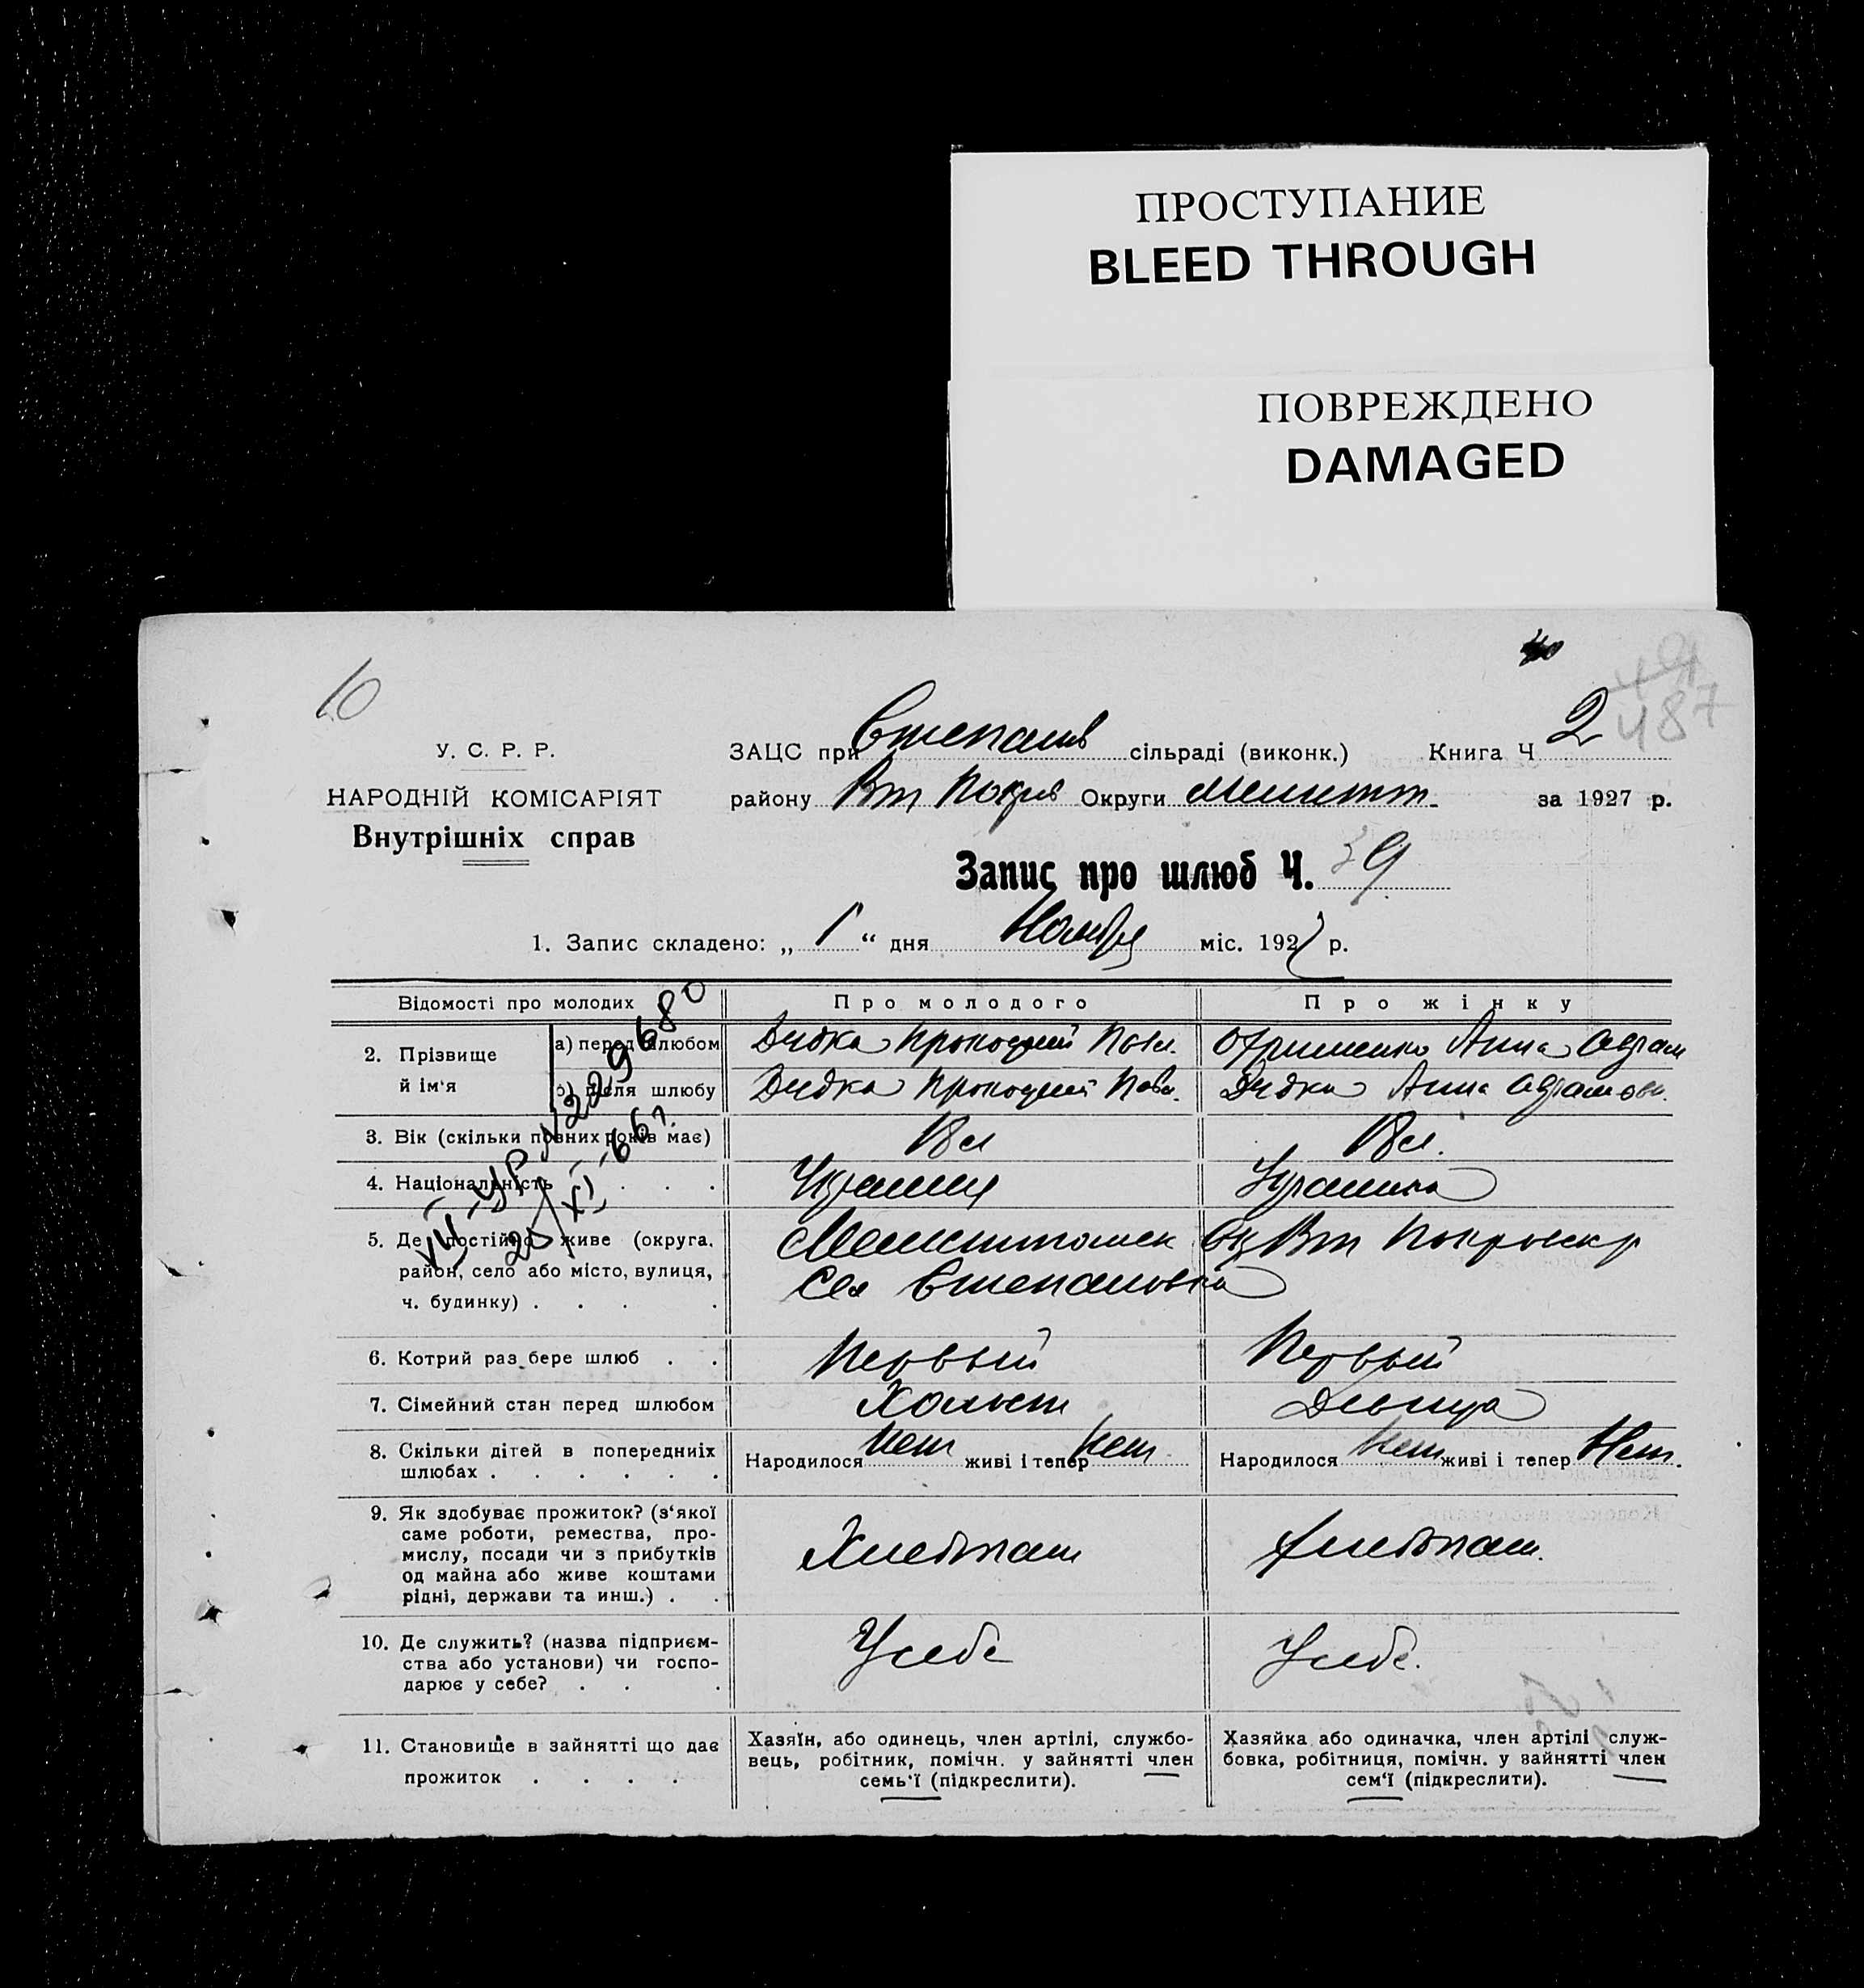 ПРОСТУПАНИЕ
BLEED THROUGH
ПОВРЕЖДЕНО
DAMAGED
10
487
У. С. Р. Р.
НАРОДНІЙ КОМІСАРІЯТ
Внутрішніх справ
ЗАЦС при Степанів сільраді (виконк.) Книга Ч 2
району Округи за 1927 р.
Запис про шлюб Ч. 39
1. Запис складено: „ 1 “ дня Ноября міс. 1927 р.
Відомості про молодих Про молодого Про жінку
2. Прізвище й ім‘я
а) перед шлюбом Дидка Прокофий Павл. Анна Адрам
б) після шлюбу Дидка Прокофий Павл. Дидка Анна Адрамовн.
3. Вік (скільки повних років має) 18 л 18 л.
4. Національність . . . Украинец Украинка
5. Де постійно живе (округа, район, село або місто, вулиця, ч. будинку) . . . . Покровскр
Сел Степановка
6. Котрий раз бере шлюб . . Первый Первый
7. Сімейний стан перед шлюбом Холост Девица
8. Скільки дітей в попередниіх шлюбах . . . . . . Народилося Нет живі і тепер Нет Народилося Нет живі і тепер Нет.
9. Як здобуває прожиток? (з‘якої саме роботи, ремества, промислу, посади чи з прибутків од майна або живе коштами рідні, держави та инш.) . . Хлебпаш Хлебпаш.
10. Де служить? (назва підприємства або установи) чи господарює у себе? . . . У себе У себе.
11. Становище в зайнятті що дає прожиток . . . .
Хазяїн, або одинець, член артілі, службовець, робітник, помічн. у зайнятті член семь‘ї (підкреслити).
Хазяйка або одиначка, член артілі службовка, робітниця, помічн. у зайнятті член сем‘ї (підкреслити).
VII-УР N 229680
25/XI-66 г.